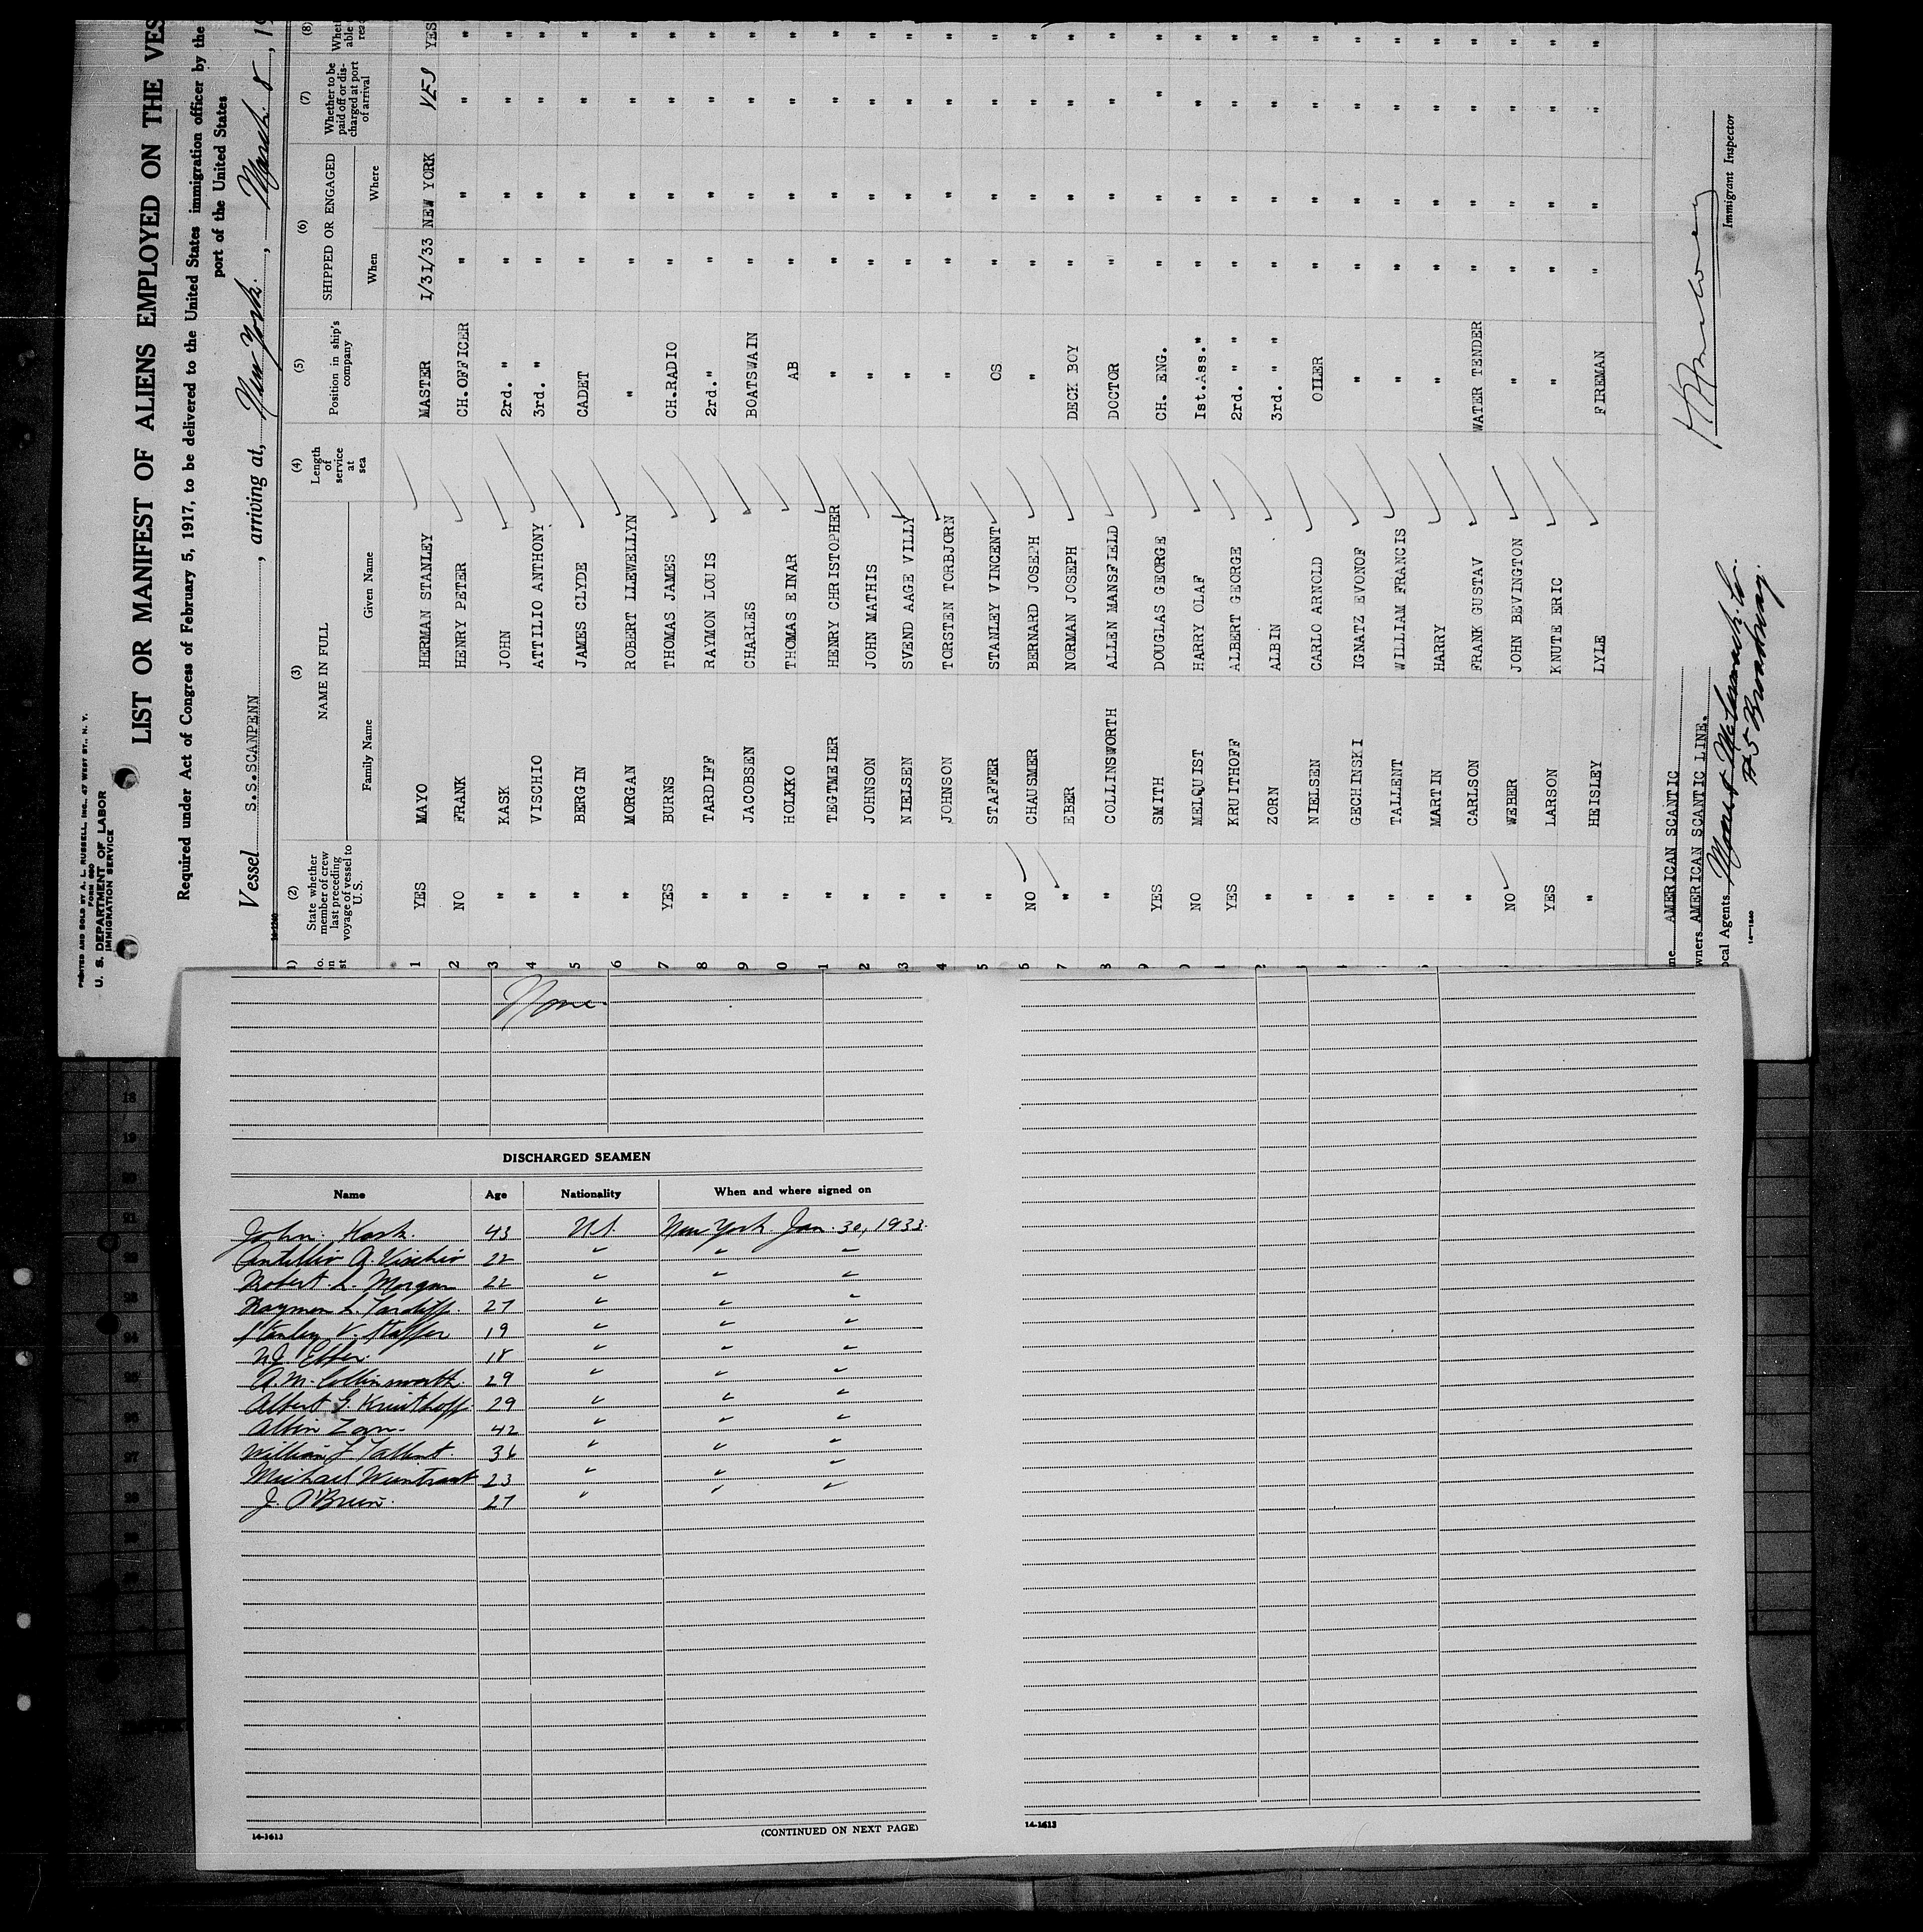 PRINTED AND SOLD BY A. L. RUSSELL, INC., 47 WEST ST., N. Y.
FORM 680
U. S. DEPARTMENT OF LABOR
IMMIGRATION SERVICE
LIST OR MANIFEST OF ALIENS EMPLOYED ON THE VES
Required under Act of Congress of February 5, 1917, to be delivered to the United States immigration officer by the
port of the United States
Vessel S.S.SCANPENN, arriving at, New York., March 8, 19
(2) (3) (4) (5) (6) (7) (8)
State whether member of crew last preceding voyage of vessel to U.S. NAME IN FULL Length of service at sea Position in ship's company SHIPPED OR ENGAGED Whether to be paid off or discharged at port of arrival
Family Name Given Name When Where
1 YES MAYO HERMAN STANLEY MASTER 1/31/33 NEW YORK YES YES
2 NO FRANK HENRY PETER CH.OFFICER " " " "
3 " KASK JOHN 2rd. " " " " "
4 " VISCHIO ATTILIO ANTHONY 3rd. " " " " "
5 " BERGIN JAMES CLYDE CADET " " " "
6 " MORGAN ROBERT LLEWELLYN " " " " "
7 YES BURNS THOMAS JAMES CH.RADIO " " " "
8 " TARDIFF RAYMON LOUIS 2rd." " " " "
9 " JACOBSEN CHARLES BOATSWAIN " " " "
0 " HOLKKO THOMAS EINAR AB " " " "
1 " TEGTMEIER HENRY CHRISTOPHER " " " " "
2 " JOHNSON JOHN MATHIS " " " " "
3 " NIELSEN SVEND AAGE VILLY " " " " "
4 " JOHNSON TORSTEN TORBJORN " " " " "
5 " STAFFER STANLEY VINCENT OS " " " "
6 NO CHAUSMER BERNARD JOSEPH " " " " "
7 " EBER NORMAN JOSEPH DECK BOY " " " "
8 " COLLINSWORTH ALLEN MANSFIELD DOCTOR " " " "
9 YES SMITH DOUGLAS GEORGE CH. ENG. " " " "
0 NO MELQUIST HARRY OLAF 1st.Ass." " " " "
1 YES KRUITHOFF ALBERT GEORGE 2rd. " " " " " "
2 " ZORN ALBIN 3rd. " " " " " "
3 " NIELSEN CARLO ARNOLD OILER " " " "
4 " GECHINSKI IGNATZ EVONOF " " " " "
5 " TALLENT WILLIAM FRANCIS " " " " "
6 " MARTIN HARRY " " " " "
7 " CARLSON FRANK GUSTAV WATER TENDER " " " "
8 NO WEBER JOHN BEVINGTON " " " " "
9 YES LARSON KNUTE ERIC " " " " "
" HEISLEY LYLE FIREMAN " " " "
ne. AMERICAN SCANTIC
wners AMERICAN SCANTIC LINE.
ocal Agents Moore & McCormack Co.
5 Broadway.
Immigrant Inspector
14—1240
None
DISCHARGED SEAMEN
Name Age Nationality When and where signed on
John Kask. 43 US New York Jan. 30, 1933.
Antillio A. Vischio 22 " " "
Robert L. Morgan 22 " " "
Raymon L. Tardiff 27 " " "
Stanley V. Staffer 19 " " "
N.J. Eber. 18 " " "
A.M. Collinsworth. 29 " " "
Albert G. Kruithoff 29 " " "
Albin Zorn. 42 " " "
William F. Tallent. 36 " " "
Michael Weintraub 23 " " "
J. O'Brien. 27 " " "
14-1613
(CONTINUED ON NEXT PAGE)
14-1613